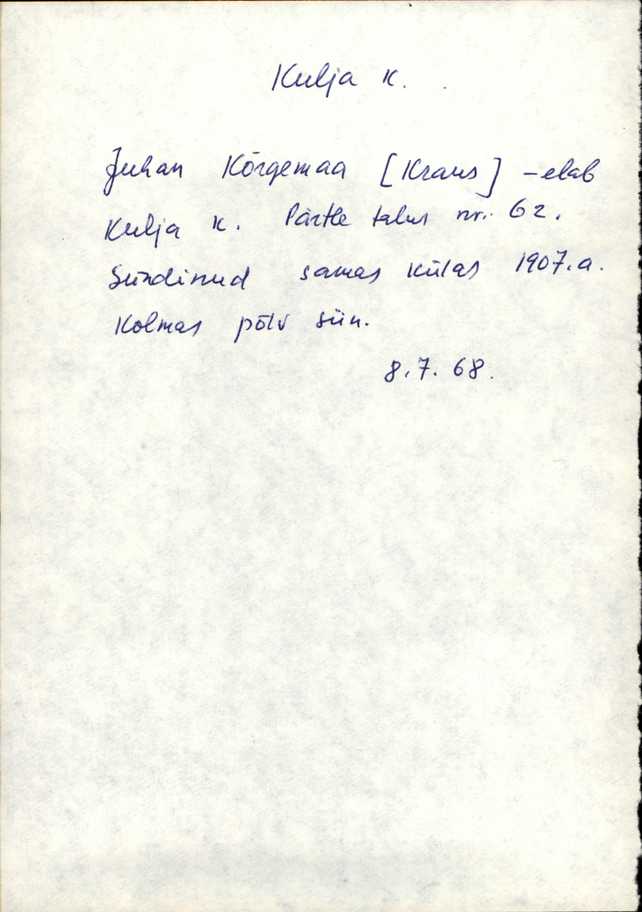 Kulja k.
Juhan Kõrgemaa [Kraus] - elab
Kulja k. Pärtle talus nr. 62.
Sündinud samas külas 1907.a.
Kolmas põlv siin.
8.7.68.